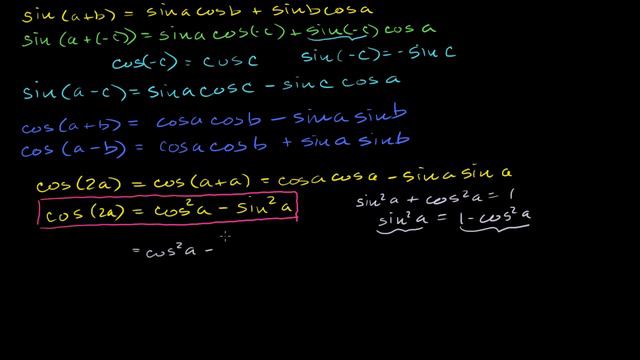 sin(a+b) = sina cosb + sinb cosa
sin(a+(-c)) = sina cos(-c) + sin(-c) cosa
cos(-c) = cosc   sin(-c) = -sinc
sin(a-c) = sina cosc - sinc cosa
cos(a+b) = cosa cosb - sina sinb
cos(a-b) = cosa cosb + sina sinb
cos(2a) = cos(a+a) = cosa cosa - sina sina
cos(2a) = cos²a - sin²a
sin²a + cos²a = 1
sin²a = 1-cos²a
= cos²a -